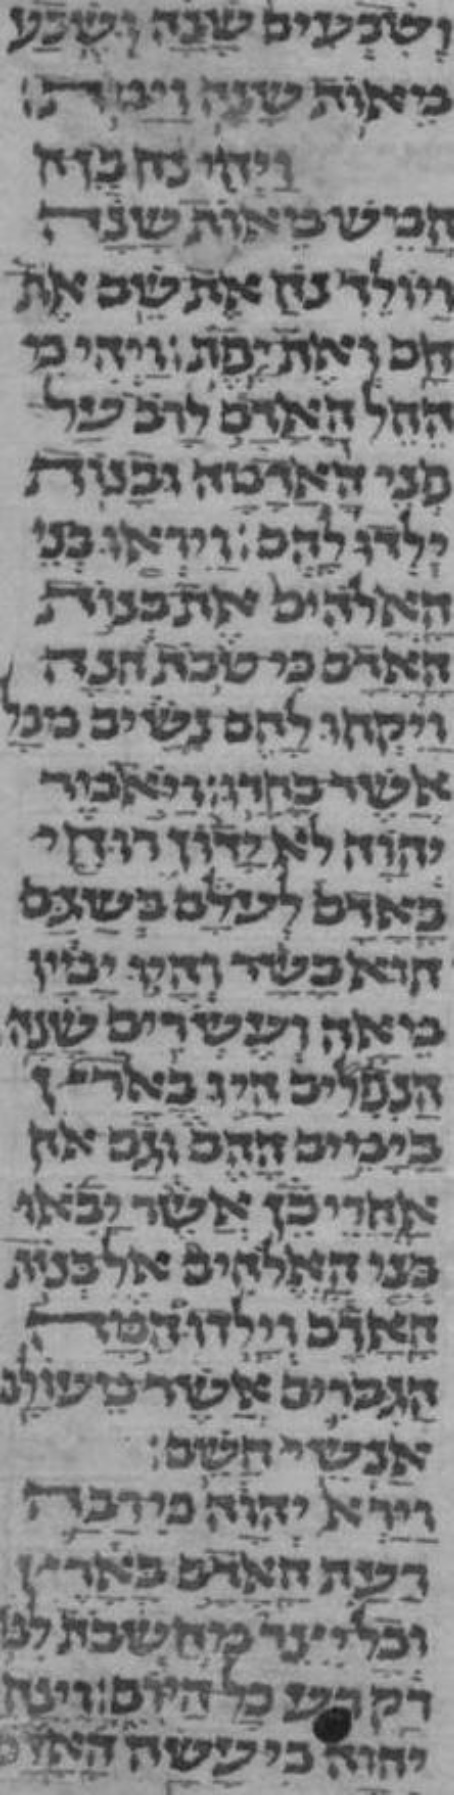 וְשִׁבְעִים שָׁנָה וּשְׁבַע
מֵאוֹת שָׁנָה וַיָּמֹת׃
וַיְהִי נֹחַ בֶּן
חֲמֵשׁ מֵאוֹת שָׁנָה
וַיּוֹלֶד נֹחַ אֶת שֵׁם אֶת
חָם וְאֶת יָפֶת׃ וַיְהִי כִּי
הֵחֵל הָאָדָם לָרֹב עַל
פְּנֵי הָאֲדָמָה וּבָנוֹת
יֻלְּדוּ לָהֶם׃ וַיִּרְאוּ בְנֵי
הָאֱלֹהִים אֶת בְּנוֹת
הָאָדָם כִּי טֹבֹת הֵנָּה
וַיִּקְחוּ לָהֶם נָשִׁים מִכֹּל
אֲשֶׁר בָּחָרוּ׃ וַיֹּאמֶר
יְהוָה לֹא יָדוֹן רוּחִי
בָאָדָם לְעֹלָם בְּשַׁגַּם
הוּא בָשָׂר וְהָיוּ יָמָיו
מֵאָה וְעֶשְׂרִים שָׁנָה
הַנְּפִלִים הָיוּ בָאָרֶץ
בַּיָּמִים הָהֵם וְגַם
אַחֲרֵי כֵן אֲשֶׁר יָבֹאוּ
בְּנֵי הָאֱלֹהִים אֶל בְּנוֹת
הָאָדָם וְיָלְדוּ הֵמָּה
הַגִּבֹּרִים אֲשֶׁר מֵעוֹלָם
אַנְשֵׁי הַשֵּׁם׃
וַיַּרְא יְהוָה כִּי רַבָּה
רָעַת הָאָדָם בָּאָרֶץ
וְכָל יֵצֶר מַחְשְׁבֹת לִבּוֹ
רַק רַע כָּל הַיּוֹם׃ וַיִּנָּחֶם
יְהוָה כִּי עָשָׂה הָאָדָם